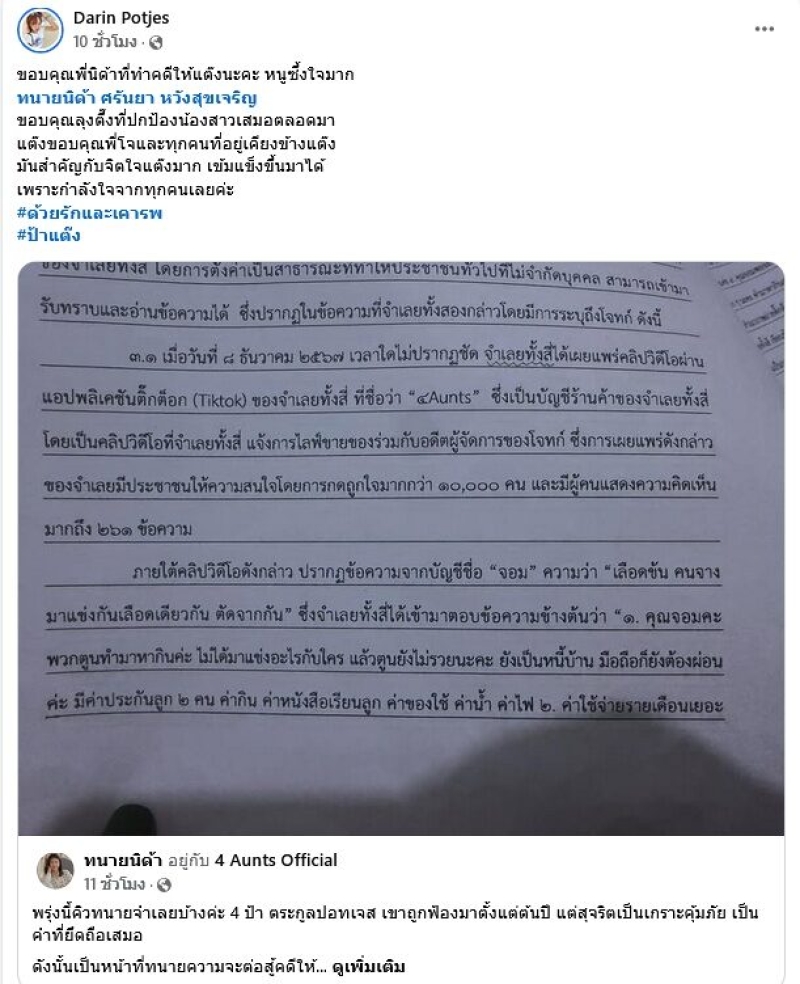 Darin Potjes
10 ชั่วโมง ·
ขอบคุณพี่นิด้าที่ทำคดีให้แต๊งนะคะ หนูซึ้งใจมาก
ทนายนิด้า ศรันยา หวังสุขเจริญ
ขอบคุณลุงตึ๋งที่ปกป้องน้องสาวเสมอตลอดมา
แต๊งขอบคุณพี่โจและทุกคนที่อยู่เคียงข้างแต๊ง
มันสำคัญกับจิตใจแต๊งมาก เข้มแข็งขึ้นมาได้
เพราะกำลังใจจากทุกคนเลยค่ะ
#ด้วยรักและเคารพ
#ป้าแต๊ง
ของจำเลยทั้งสี่ โดยการตั้งค่าเป็นสาธารณะที่ทำให้ประชาชนทั่วไปที่ไม่จำกัดบุคคล สามารถเข้ามา
รับทราบและอ่านข้อความได้ ซึ่งปรากฏในข้อความที่จำเลยทั้งสองกล่าวโดยมีการระบุถึงโจทก์ ดังนี้
๓.๑ เมื่อวันที่ ๘ ธันวาคม ๒๕๖๗ เวลาใดไม่ปรากฏชัด จำเลยทั้งสี่ได้เผยแพร่คลิปวิดีโอผ่าน
แอปพลิเคชันติ๊กต็อก (Tiktok) ของจำเลยทั้งสี่ ที่ชื่อว่า “๔Aunts” ซึ่งเป็นบัญชีร้านค้าของจำเลยทั้งสี่
โดยเป็นคลิปวิดีโอที่จำเลยทั้งสี่ แจ้งการไลฟ์ขายของร่วมกับอดีตผู้จัดการของโจทก์ ซึ่งการเผยแพร่ดังกล่าว
ของจำเลยมีประชาชนให้ความสนใจโดยการกดถูกใจมากกว่า ๑๐,๐๐๐ คน และมีผู้คนแสดงความคิดเห็น
มากถึง ๒๖๑ ข้อความ
ภายใต้คลิปวิดีโอดังกล่าว ปรากฏข้อความจากบัญชีชื่อ “จอม” ความว่า “เลือดข้น คนจาง
มาแข่งกันเลือดเดียวกัน ตัดจากกัน” ซึ่งจำเลยทั้งสี่ได้เข้ามาตอบข้อความข้างต้นว่า “๑. คุณจอมคะ
พวกตูนทำมาหากินค่ะ ไม่ได้มาแข่งอะไรกับใคร แล้วตูนยังไม่รวยนะคะ ยังเป็นหนี้บ้าน มือถือก็ยังต้องผ่อน
ค่ะ มีค่าประกันลูก ๒ คน ค่ากิน ค่าหนังสือเรียนลูก ค่าของใช้ ค่าน้ำ ค่าไฟ ๒. ค่าใช้จ่ายรายเดือนเยอะ
ทนายนิด้า อยู่กับ 4 Aunts Official
11 ชั่วโมง ·
พรุ่งนี้คิวทนายจำเลยบ้างค่ะ 4 ป้า ตระกูลปอทเจส เขาถูกฟ้องมาตั้งแต่ต้นปี แต่สุจริตเป็นเกราะคุ้มภัย เป็น
คำที่ยึดถือเสมอ
ดังนั้นเป็นหน้าที่ทนายความจะต่อสู้คดีให้... ดูเพิ่มเติม